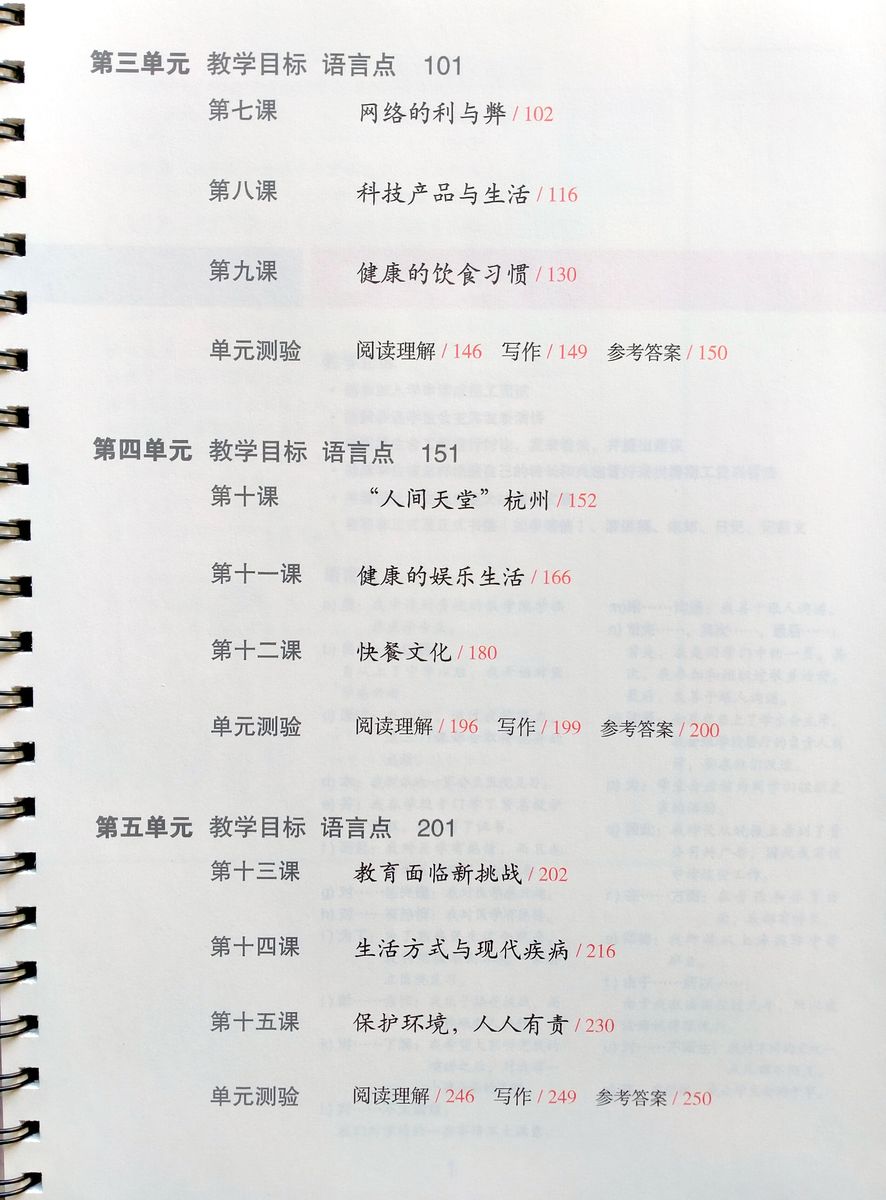 第三单元 教学目标 语言点 101
第七课 网络的利与弊 / 102
第八课 科技产品与生活 / 116
第九课 健康的饮食习惯 / 130
单元测验 阅读理解 / 146 写作 / 149 参考答案 / 150
第四单元 教学目标 语言点 151
第十课 “人间天堂”杭州 / 152
第十一课 健康的娱乐生活 / 166
第十二课 快餐文化 / 180
单元测验 阅读理解 / 196 写作 / 199 参考答案 / 200
第五单元 教学目标 语言点 201
第十三课 教育面临新挑战 / 202
第十四课 生活方式与现代疾病 / 216
第十五课 保护环境，人人有责 / 230
单元测验 阅读理解 / 246 写作 / 249 参考答案 / 250